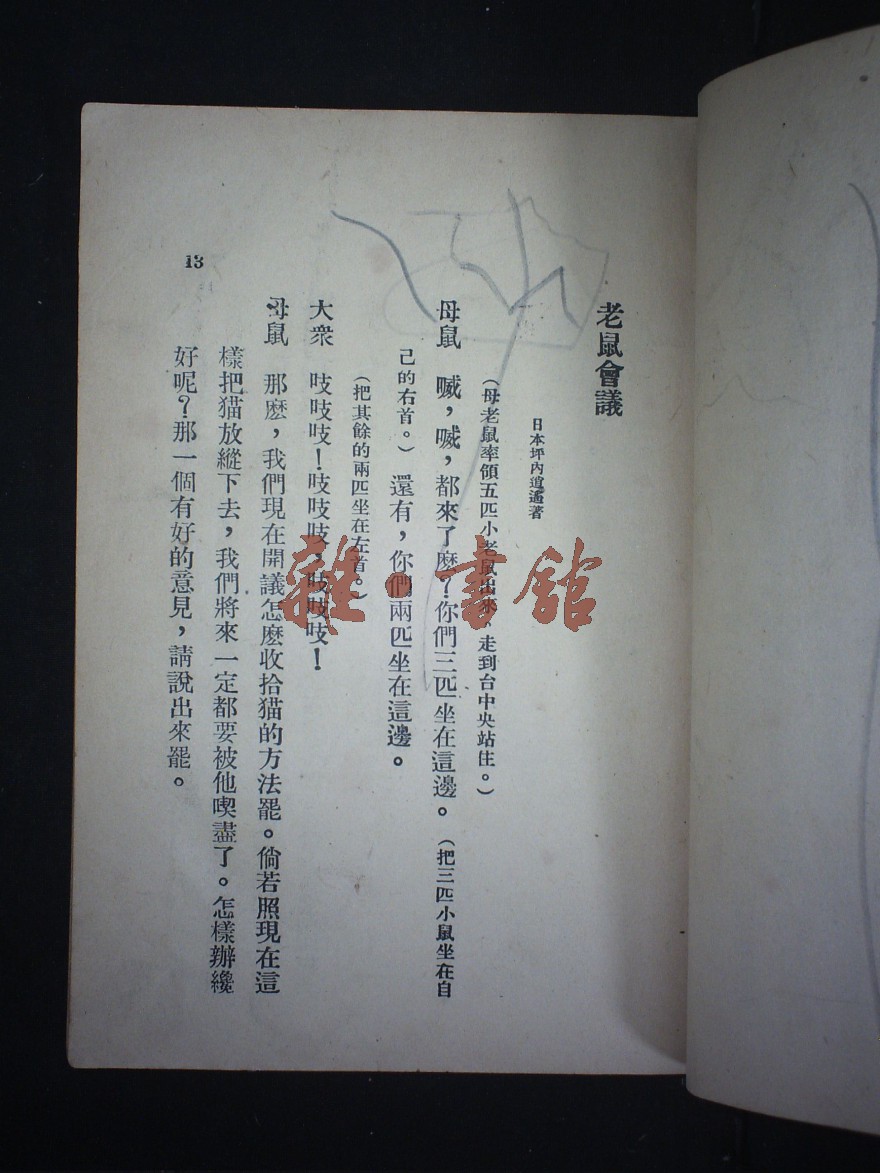 老鼠會議
日本坪內逍遙著
（母老鼠率領五匹小老鼠出來，走到台中央站住。）
母鼠　喴，喴，都來了麽？你們三匹坐在這邊。（把三匹小鼠坐在自
己的右首。）還有，你們兩匹坐在這邊。
（把其餘的兩匹坐在左首。）
大衆　吱吱吱！吱吱吱，吱吱吱！
母鼠　那麽，我們現在開議怎麽收拾猫的方法罷。倘若照現在這
樣把猫放縱下去，我們將來一定都要被他喫盡了。怎樣辦纔
好呢？那一個有好的意見，請說出來罷。
13
雜·書館